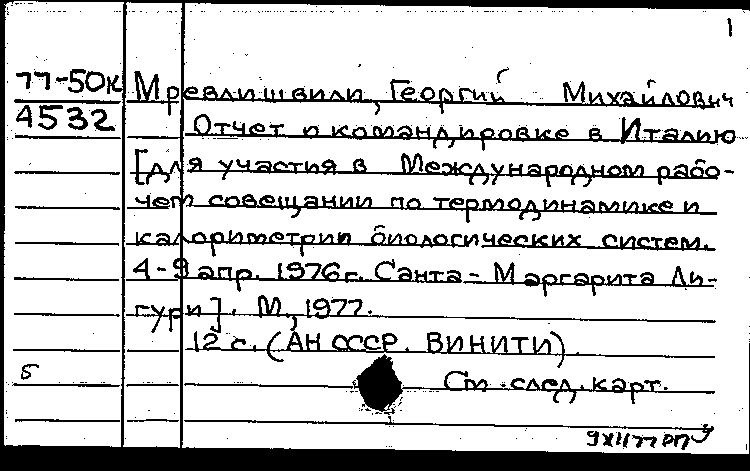 1
77-50к Мревлишвили, Георгий Михайлович
4532 Отчет о командировке в Италию
[для участия в Международном рабо-
чем совещании по термодинамике и
калориметрии биологических систем.
4-9 апр. 1976г. Санта-Маргарита Ли-
гури]. М., 1977.
12 с. (АН СССР. ВИНИТИ).
5 См. след. карт.